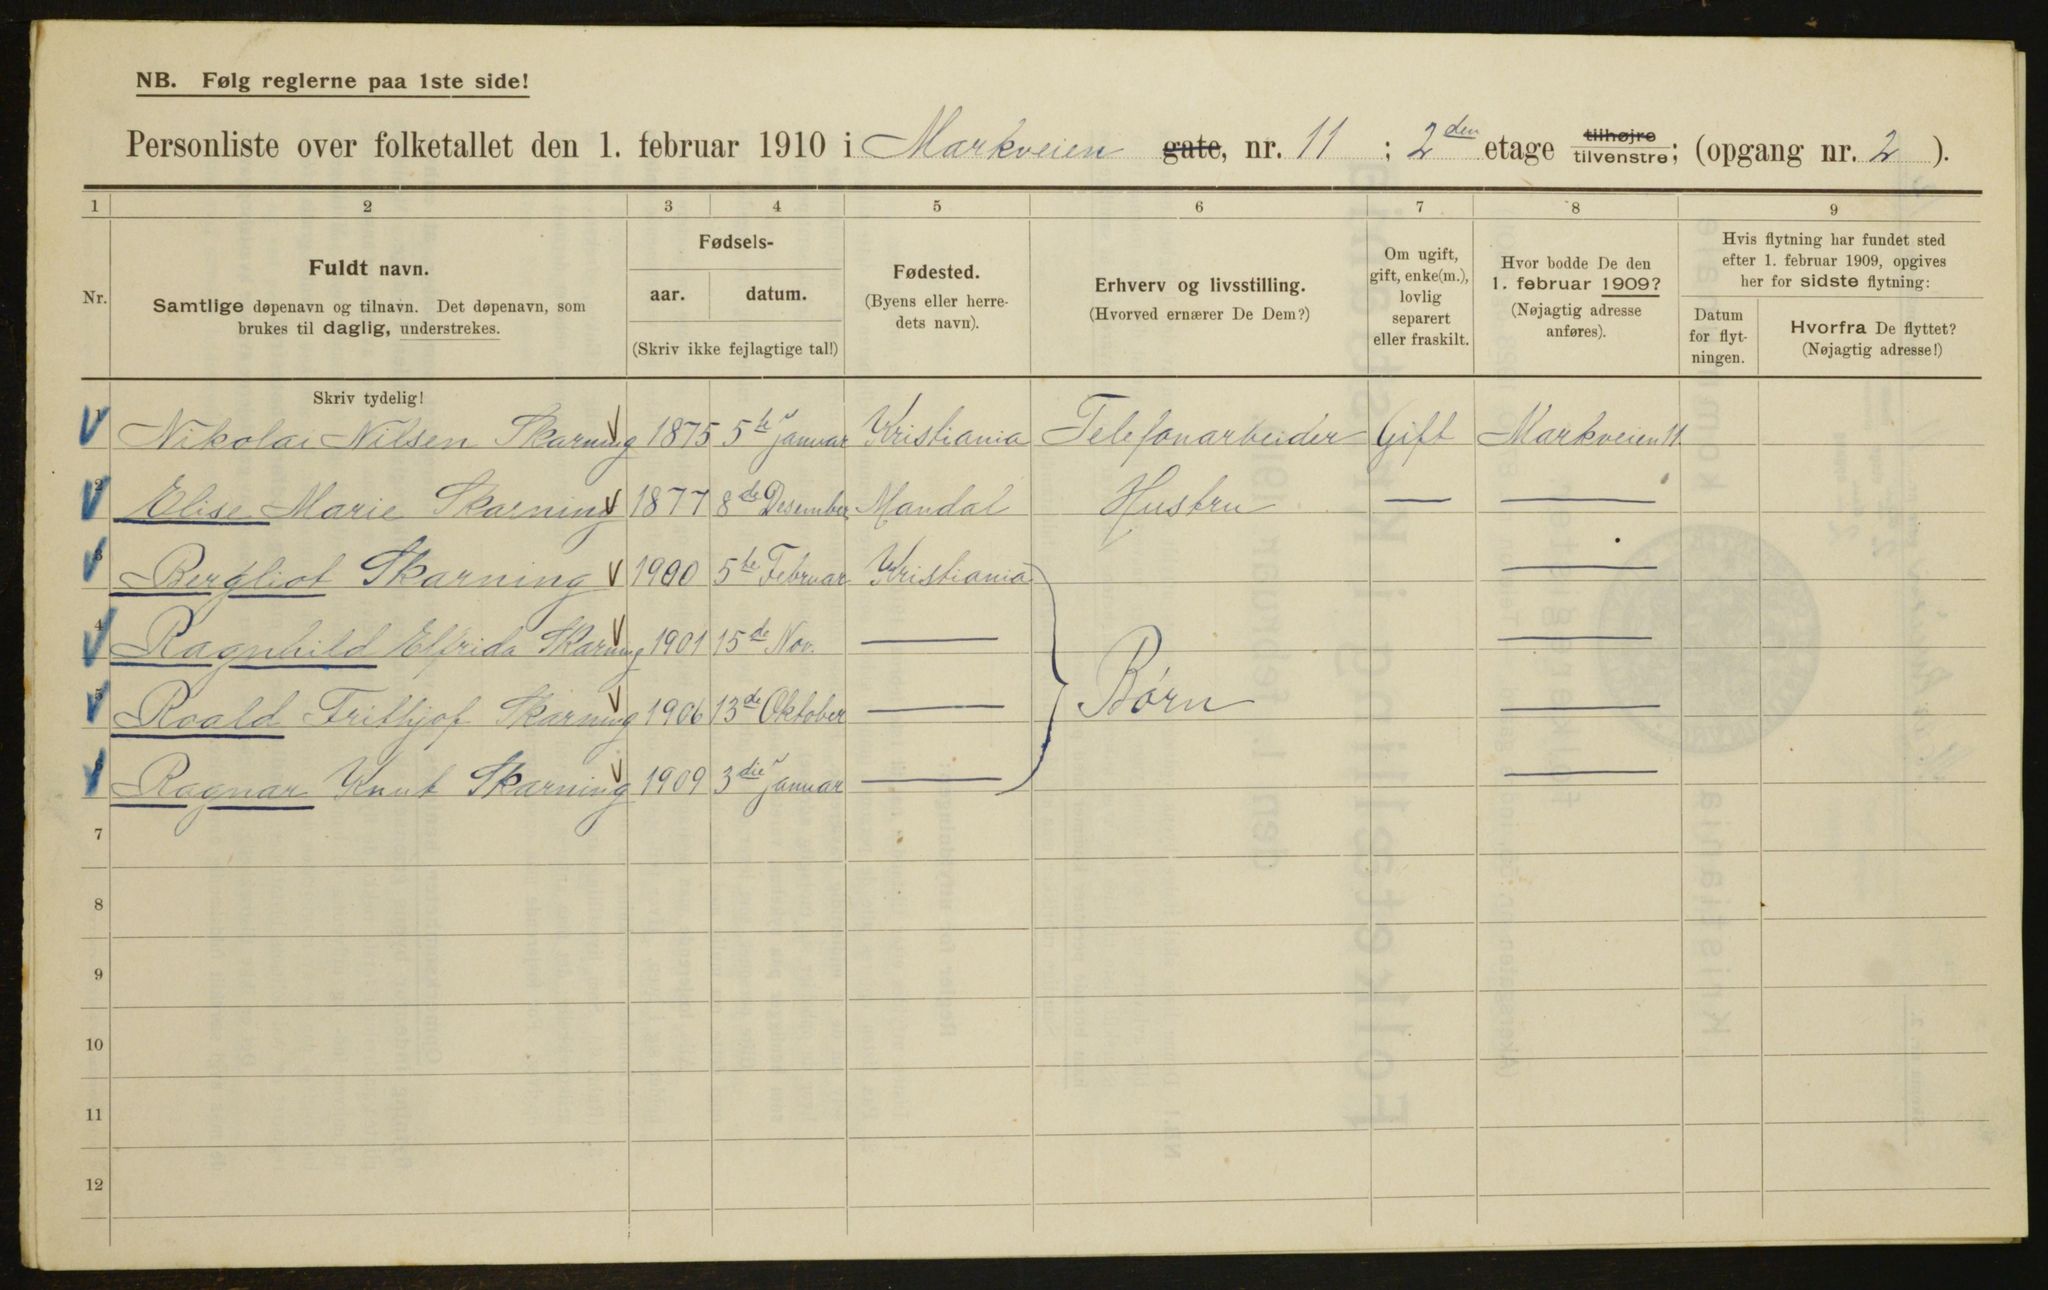 NB. Følg reglerne paa 1ste side!
Personliste over folketallet den 1. februar 1910 i Markveien gate, nr. 11 ; 2den etage tilhøjre tilvenstre; (opgang nr. 2 ).
1 2 3 4 5 6 7 8 9
Nr.
Fuldt navn.
Samtlige døpenavn og tilnavn. Det døpenavn, som
brukes til daglig, understrekes.
Fødsels-
aar. datum.
(Skriv ikke fejlagtige tal!)
Fødested.
(Byens eller herre-
dets navn).
Erhverv og livsstilling.
(Hvorved ernærer De Dem?)
Om ugift,
gift, enke(m.),
lovlig
separert
eller fraskilt.
Hvor bodde De den
1. februar 1909?
(Nøjagtig adresse
anføres).
Hvis flytning har fundet sted
efter 1. februar 1909, opgives
her for sidste flytning:
Datum
for flyt-
ningen.
Hvorfra De flyttet?
(Nøjagtig adresse!)
Skriv tydelig!
1 Nikolai Nilsen Skarning 1875 5te januar Kristiania Telefonarbeider Gift Markveien 11
2 Elise Marie Skarning 1877 8de Desember Mandal Hustru — —
3 Bergliot Skarning 1900 5te Februar Kristiania —
4 Ragnhild Elfrida Skarning 1901 15de Nov. — —
Børn
5 Roald Frithjof Skarning 1906 13de Oktober — —
6 Ragnar Knut Skarning 1909 3die januar — —
7
8
9
10
11
12